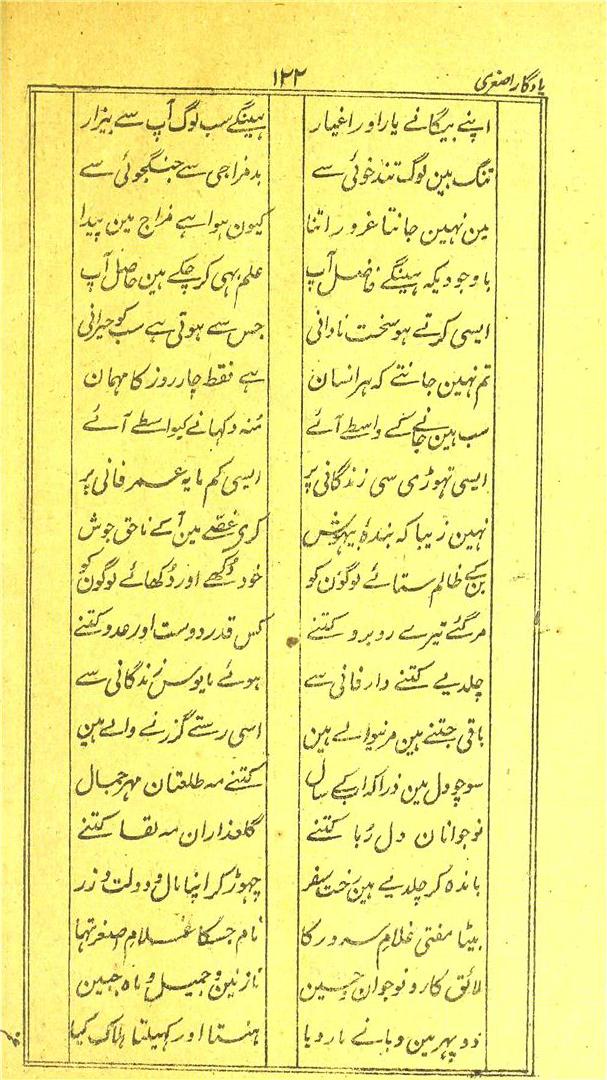 یادگار اصغری
۱۲۲
اپنے بیگانے یار اور اغیار ہینگے سب لوگ آپ سے بیزار
تنگ ہین لوگ تند خوئی سے بد مزاجی سے جنگجوئی سے
مین نہین جانتا غرور اتنا کیون ہوا ہے مزاج مین پیدا
باوجودیکہ ہینگے فاضل آپ علم بھی کر چکے ہین حاصل آپ
ایسی کرتے ہو سخت نادانی جس سے ہوتی ہے سب کو حیرانی
تم نہین جانتے کہ ہر انسان ہے فقط چار روز کا مہمان
سب ہین جانے کے واسطے آئے مُنہ دکہانے کیواسطے آئے
ایسی تہوڑی سی زندگانی پر ایسی کم مایہ عمر فانی پر
نہین زیبا کہ بندۂ بیہوش کرے غصے مین آکے ناحق جوش
بن کے ظالم ستائے لوگون کو خود دُکھے اور دُکھائے لوگون کو
مرگئے تیرے روبرو کتنے کس قدر دوست اور عدو کتنے
چلدیے کتنے دار فانی سے ہوئے مایوس زندگانی سے
باقی جتنے ہین مرنیوالے ہین اسی رستے گزرنے والے ہین
سوچو دل مین ذرا کہ ابکے سال کتنے مہ طلعتان مہر جمال
نوجوانان دل رُبا کتنے گلعذاران مہ لقا کتنے
باندہ کر چلدیے ہین رخت سفر چہوڑ کر اپنا مال و دولت و زر
بیٹا مفتی غلام سرور کا نام جسکا غلام اصغر تہا
لائق کار و نوجوان و حسین نازنین و جمیل و ماہ جبین
دو پہر مین وبا نے مار دیا ہنستا اور کہیلتا ہلاک کیا